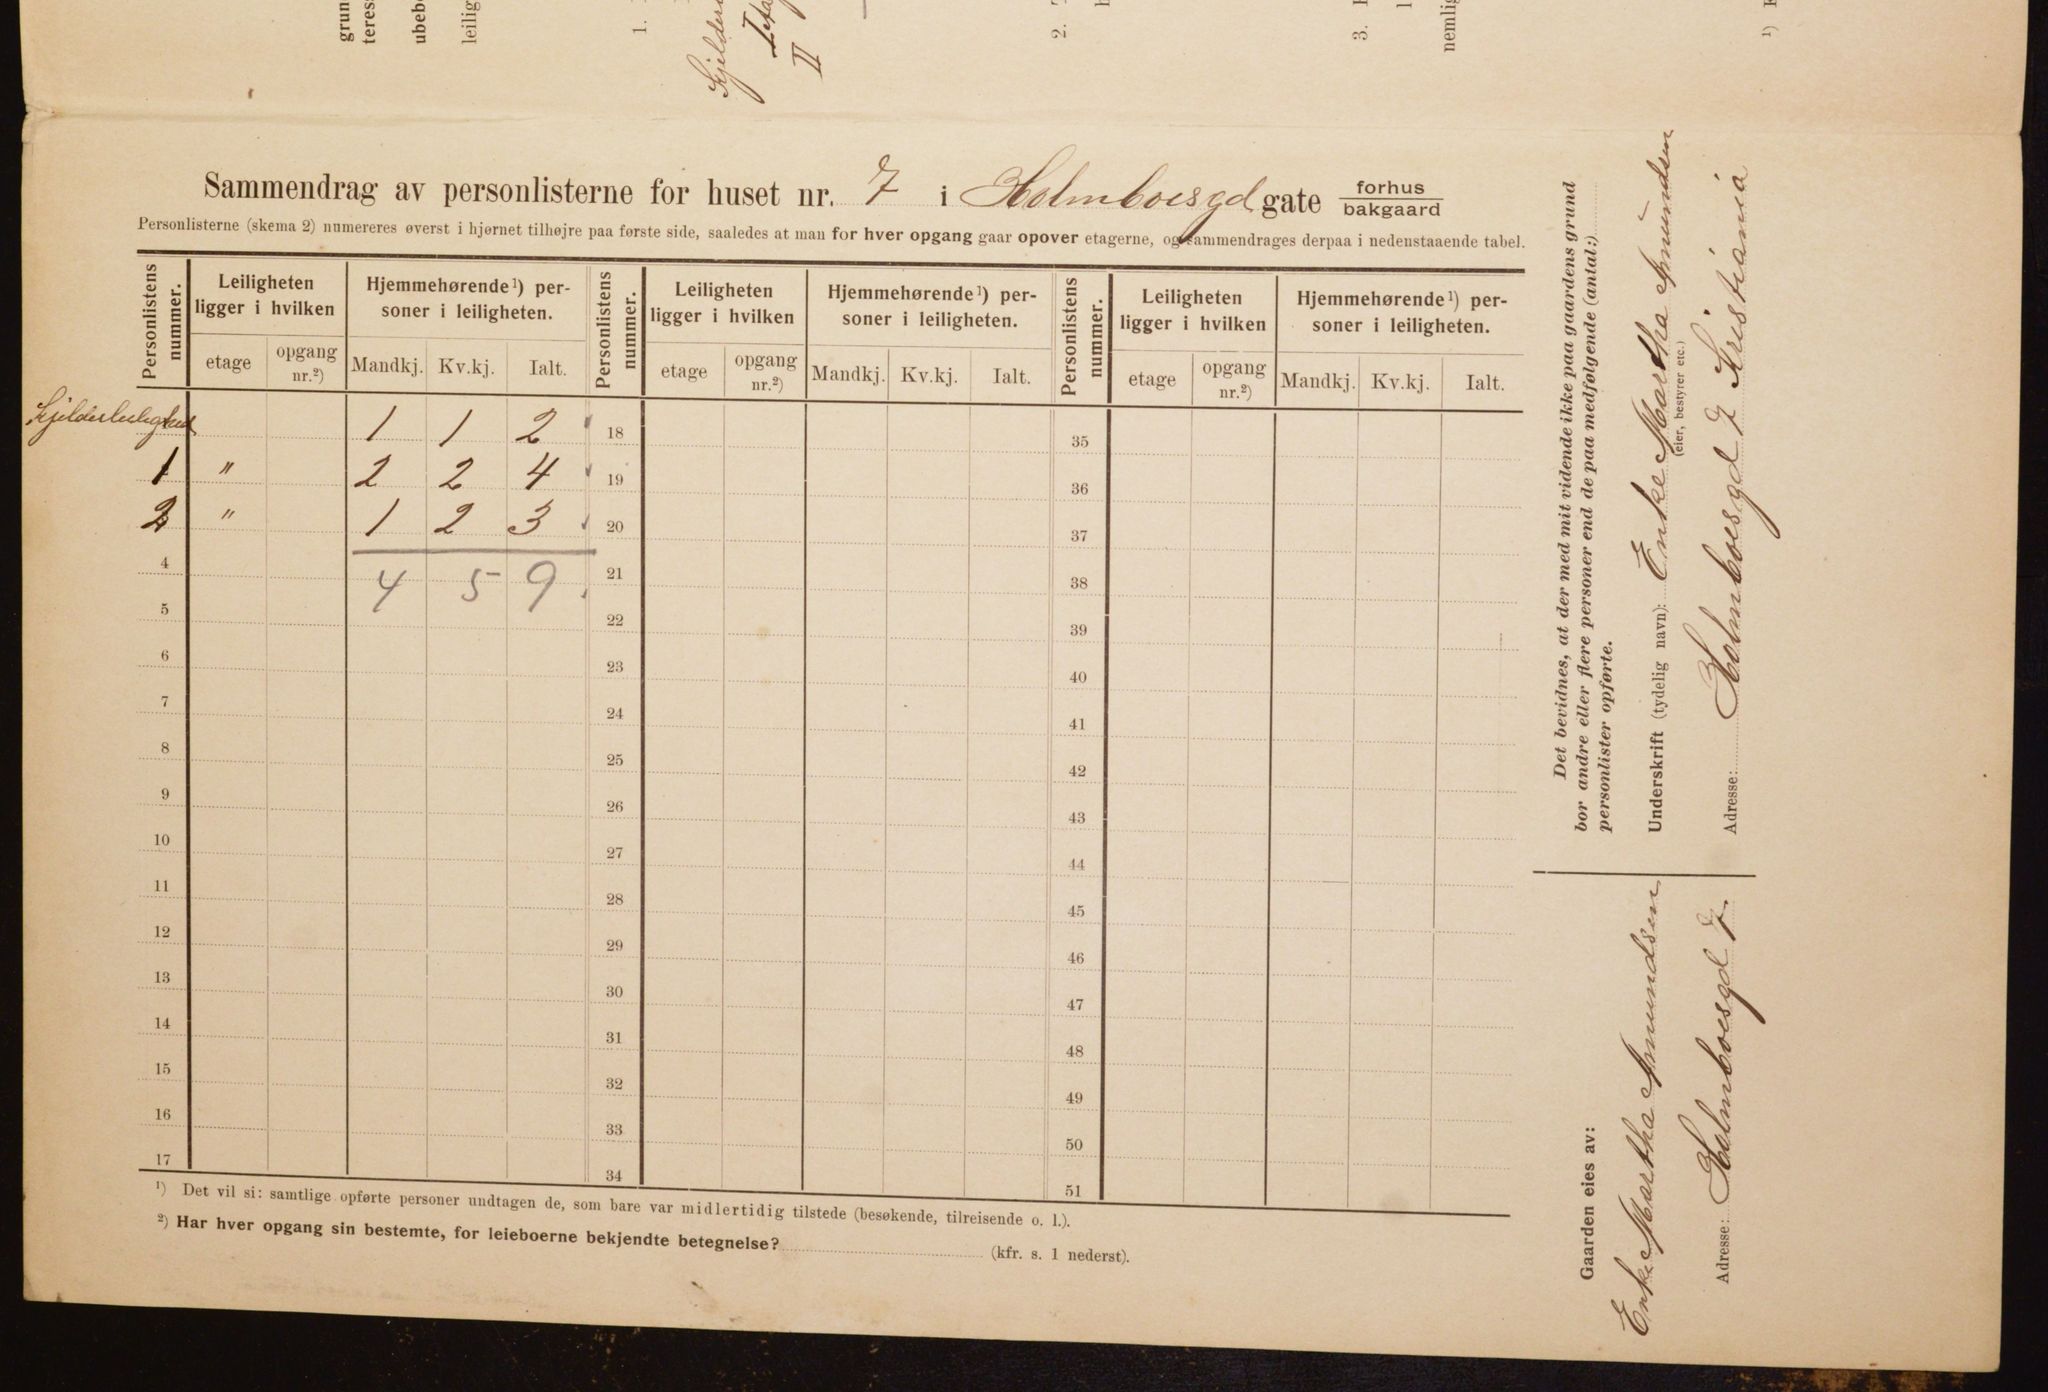 grun
teres
ubebo
leilig
1.
Kjelder
I eta
II
2.
3.
nemlig
¹)
Sammendrag av personlisterne for huset nr. 7 i Holmboesgd gate forhus
bakgaard
Personlisterne (skema 2) numereres øverst i hjørnet tilhøjre paa første side, saaledes at man for hver opgang gaar opover etagerne, og sammendrages derpaa i nedenstaaende tabel.
Personlistens nummer. Leiligheten ligger i hvilken Hjemmehørende¹) personer i leiligheten. Personlistens nummer. Leiligheten ligger i hvilken Hjemmehørende¹) personer i leiligheten. Personlistens nummer. Leiligheten ligger i hvilken Hjemmehørende¹) personer i leiligheten.
etage opgang nr.²) Mandkj. Kv.kj. Ialt. etage opgang nr.²) Mandkj. Kv.kj. Ialt. etage opgang nr.²) Mandkj. Kv.kj. Ialt.
Kjelderleilighed 1 1 2 18 35
1 " 2 2 4 19 36
2 " 1 2 3 20 37
4 4 5 9 21 38
5 22 39
6 23 40
7 24 41
8 25 42
9 26 43
10 27 44
11 28 45
12 29 46
13 30 47
14 31 48
15 32 49
16 33 50
17 34 51
¹) Det vil si: samtlige opførte personer undtagen de, som bare var midlertidig tilstede (besøkende, tilreisende o. l.).
²) Har hver opgang sin bestemte, for leieboerne bekjendte betegnelse? (kfr. s. 1 nederst).
Det bevidnes, at der med mit vidende ikke paa gaardens grund
bor andre eller flere personer end de paa medfølgende (antal:)
personlister opførte.
Underskrift (tydelig navn): Enke Martha Amundsen
(eier, bestyrer etc.)
Adresse: Holmboesgd 7 Kristiania
Gaarden eies av:
Enke Martha Amundsen
Adresse: Holmboesgd 7.